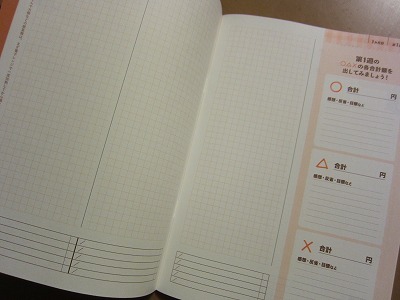 第1週の
○△×の各合計額を
出してみましょう！
○ 合計
円
感想・反省・目標など
△ 合計
円
感想・反省・目標など
× 合計
円
感想・反省・目標など